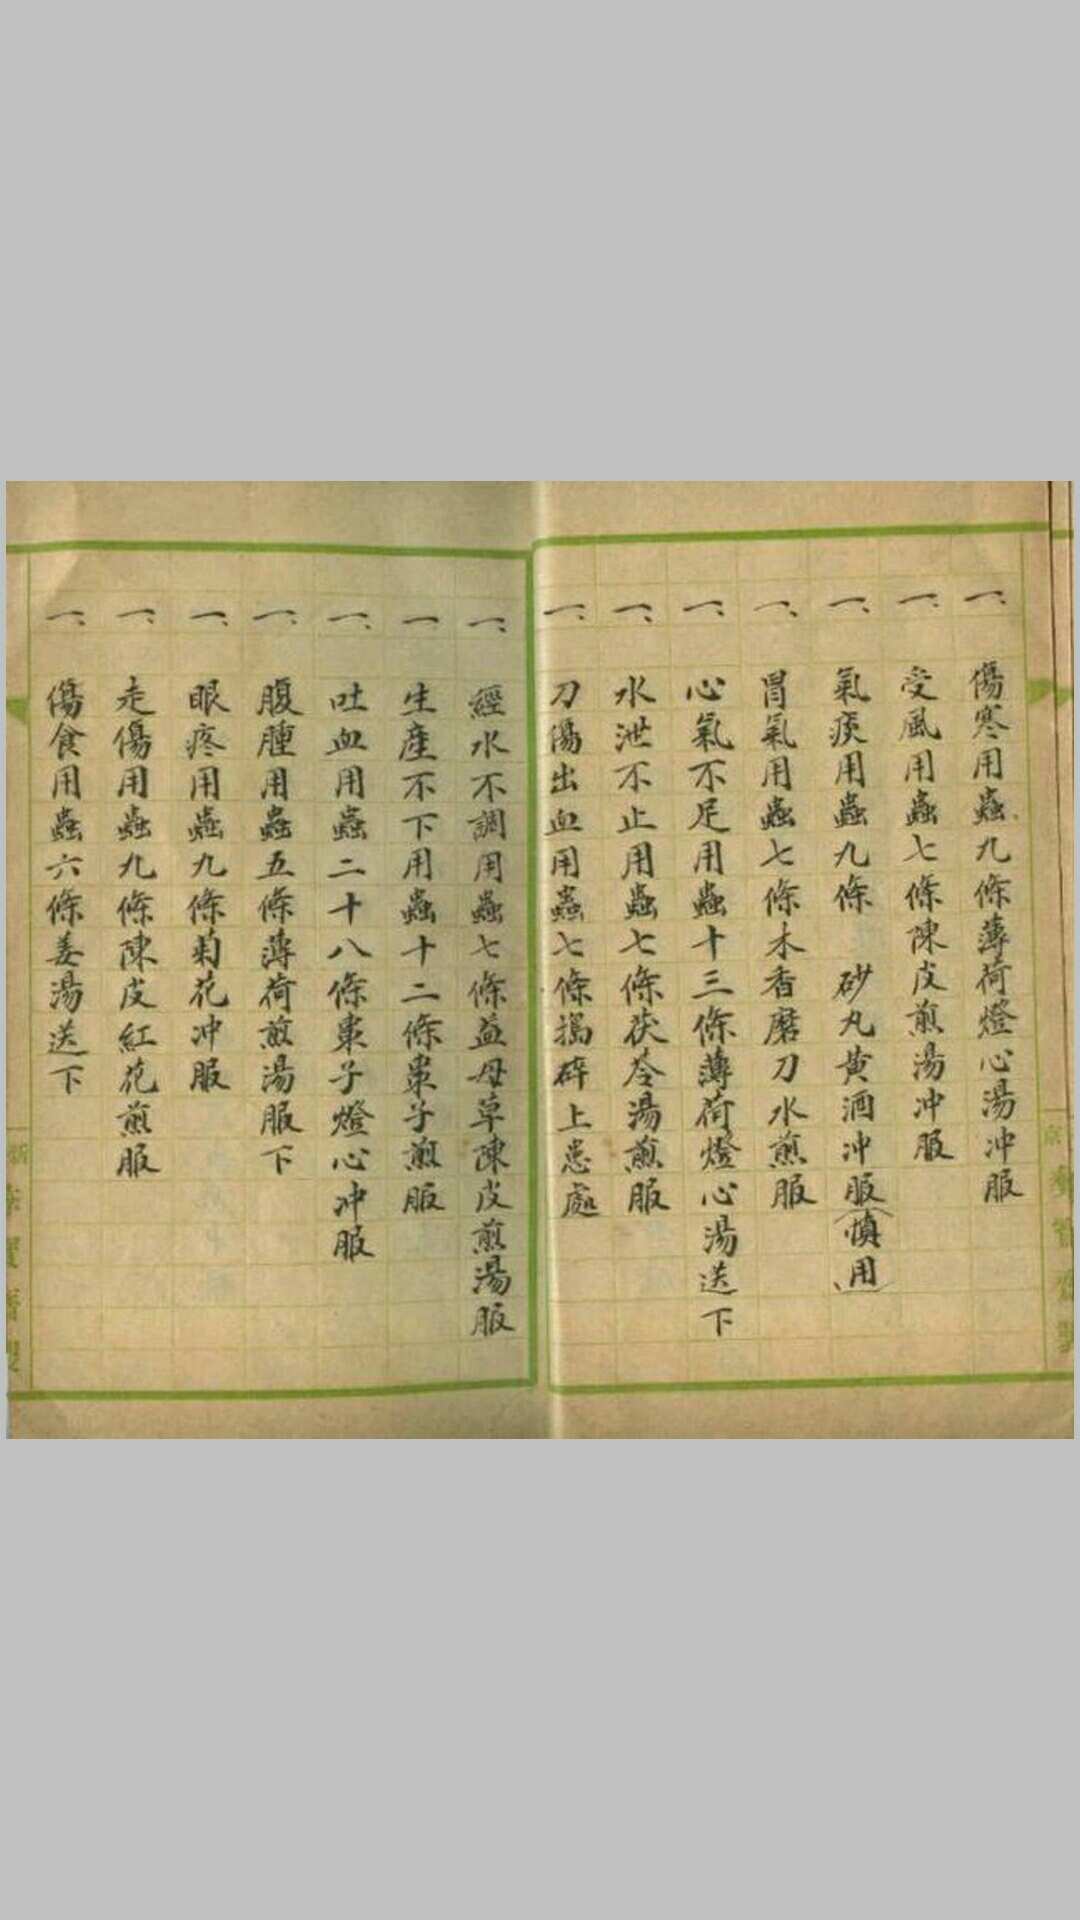 一、傷寒用蟲九條薄荷燈心湯冲服
一、受風用蟲七條陳皮煎湯冲服
一、氣痰用蟲九條 砂丸黄酒冲服(慎用)
一、胃氣用蟲七條木香磨刀水煎服
一、心氣不足用蟲十三條薄荷燈心湯送下
一、水泄不止用蟲七條茯苓湯煎服
一、刀傷出血用蟲七條搗碎上患處
一、經水不調用蟲七條益母草陳皮煎湯服
一 生產不下用蟲十二條棗子煎服
一、吐血用蟲二十八條棗子燈心冲服
一、腹腫用蟲五條薄荷煎湯服下
一、眼疼用蟲九條菊花冲服
一、走傷用蟲九條陳皮紅花煎服
一、傷食用蟲六條姜湯送下